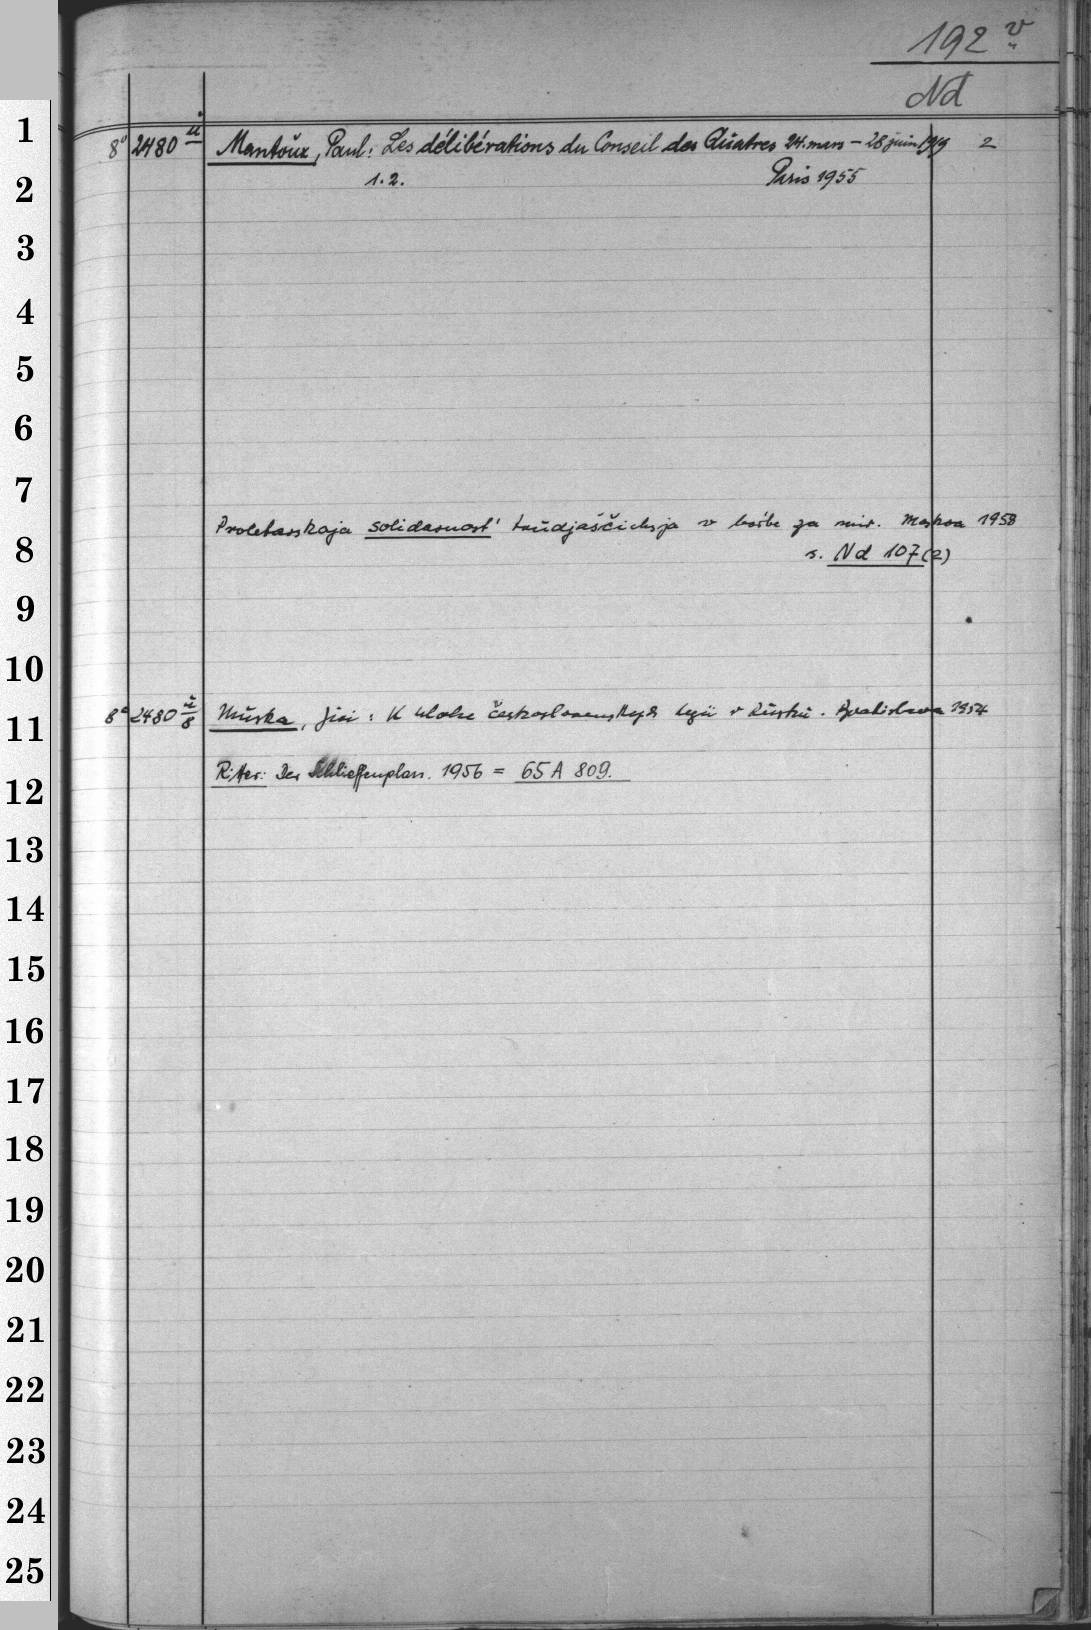 192 v
Nd
1
8° 2480 u Mantoux, Paul: Les délibérations du Conseil des Quatres 24. mars – 28 juin 1919 2
2
1. 2. Paris 1955
3
4
5
6
7
Proletarskaja solidarnost' trudjaščichsja v bor'be za mir. Moskva 1958
8
s. Nd 107 (2)
9
10
11
8° 2480 u/8 Muska, Jiří: K úloze československých legií v Rusku. Bratislava 1954
12
Ritter: Der Schlieffenplan. 1956 = 65 A 809.
13
14
15
16
17
18
19
20
21
22
23
24
25